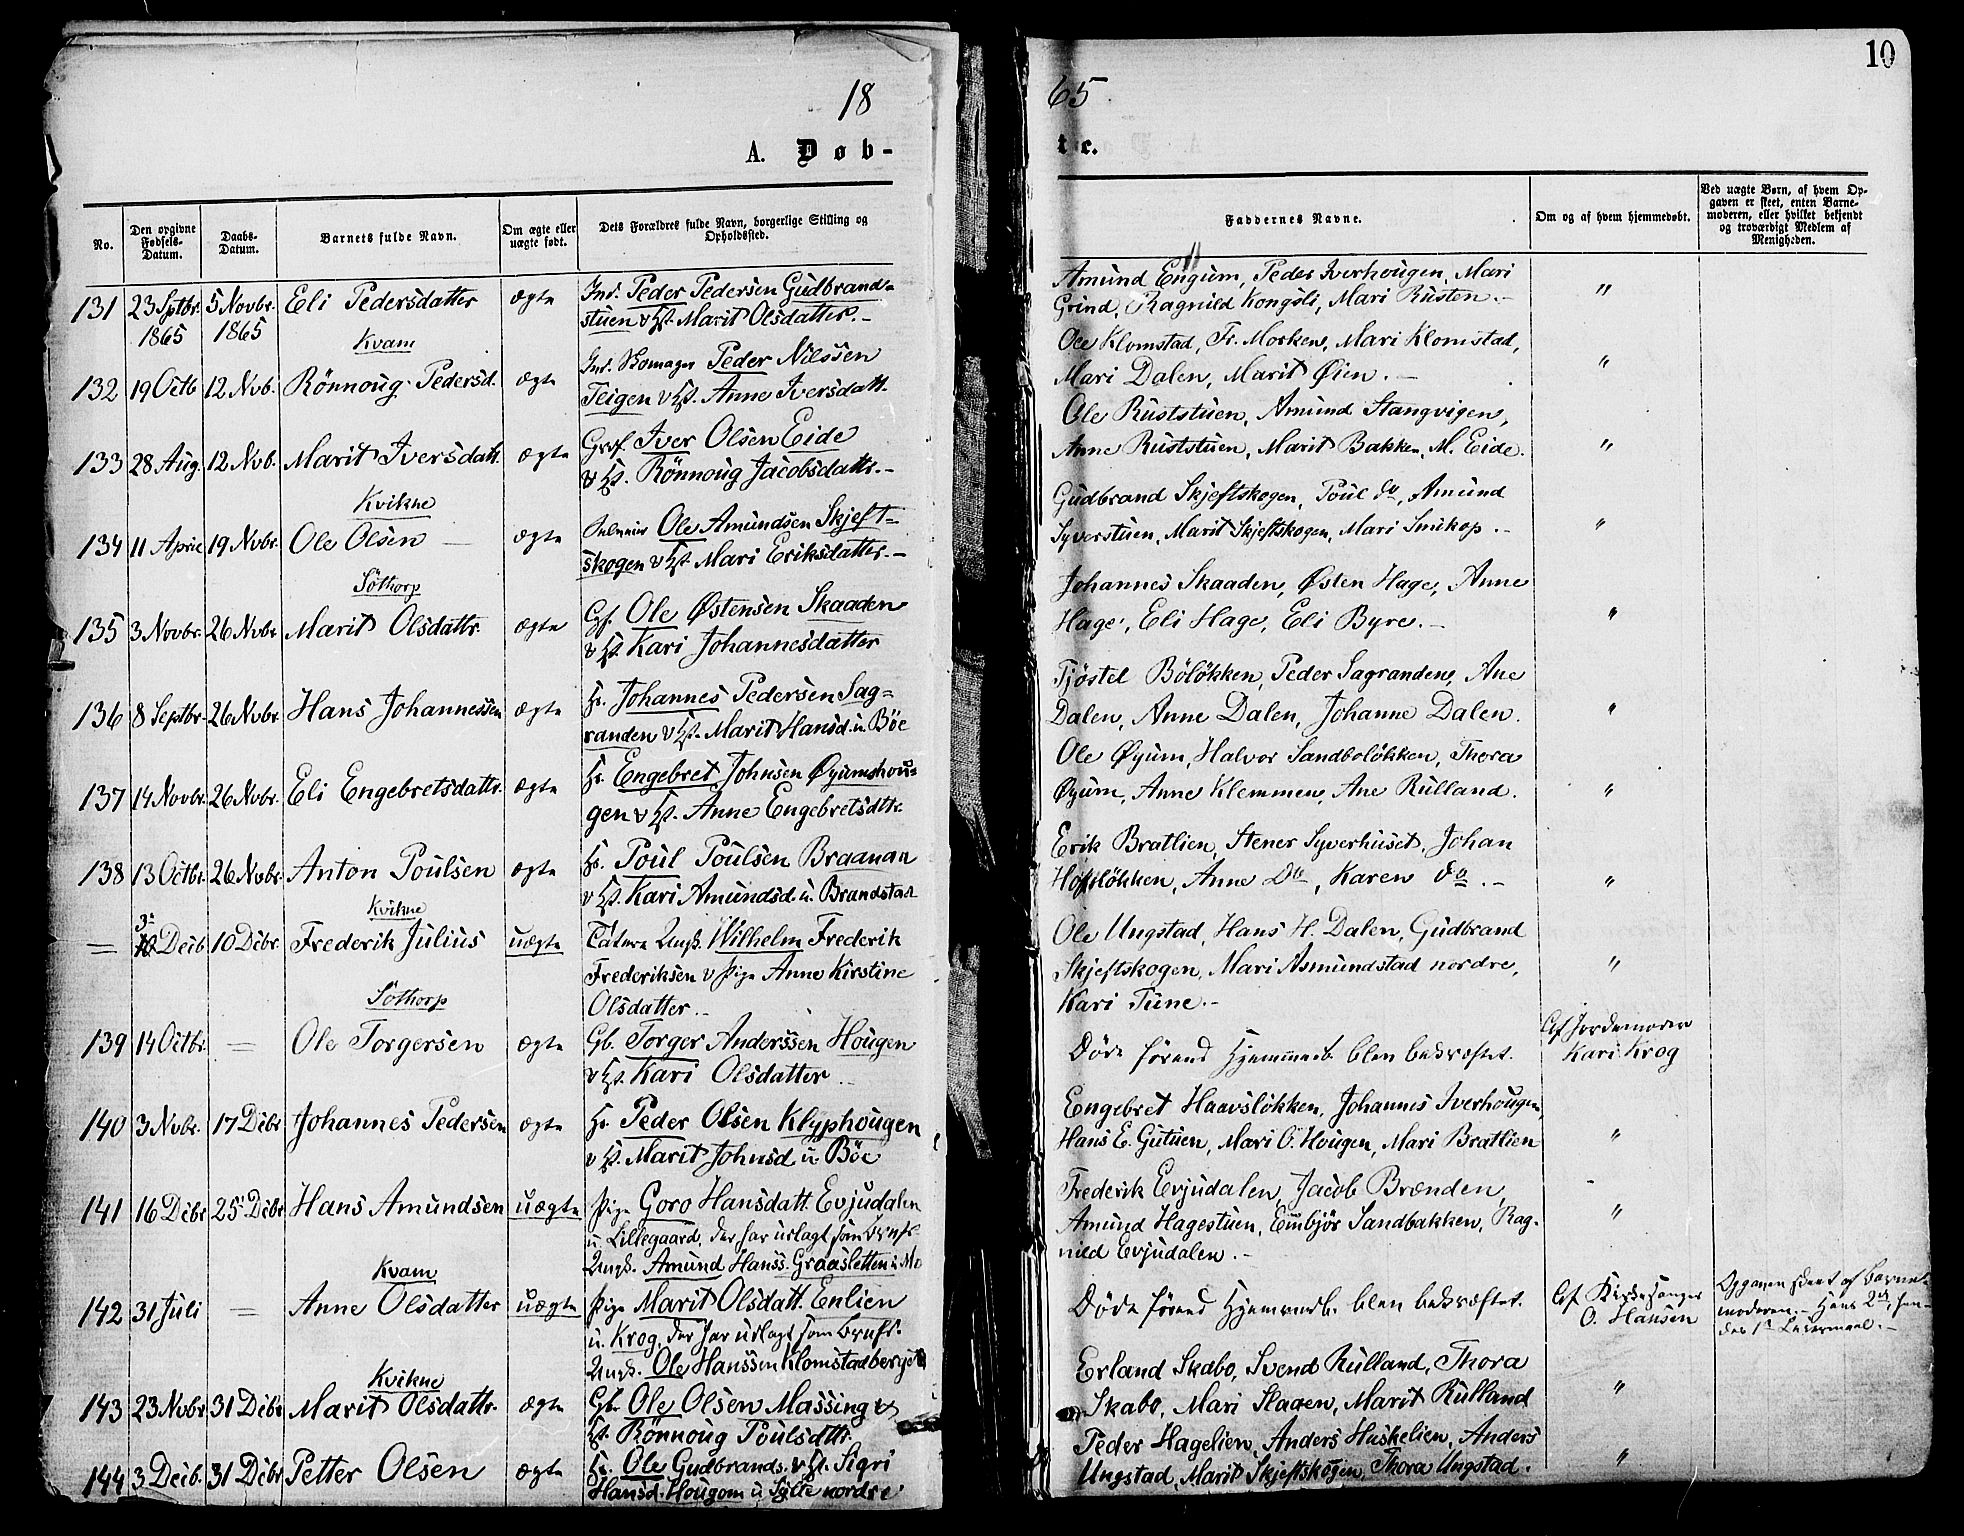 10
18 65
A. Døb- te.
No.
Den opgivne Fødsels-Datum.
Daabs-Datum.
Barnets fulde Navn.
Om ægte eller uægte født.
Dets Forældres fulde Navn, borgerlige Stilling og Opholdssted.
Faddernes Navne.
Om og af hvem hjemmedøbt.
Ved uægte Børn, af hvem Opgaven er skeet, enten Barnemoderen, eller hvilket bekjendt og troværdigt Medlem af Menigheden.
131 23 Sptbr. 1865 5 Novbr. 1865 Eli Pedersdatter ægte
Ind. Peder Pedersen Gudbrand=
stuen v Hst. Marit Olsdatter.-
Amund Engum, Peder Iverhougen, Mari
Grind, Ragnild Kongsli, Mari Rusten.-
"
Kvam
132 19 Octb 12 Nvb. Rönnoug Pedersd. ægte
Ind. Skomager Peder Nilssen
Teigen v Hst. Anne Iversdatt.
Ole Klomstad, Fr. Morken, Mari Klomstad,
Mari Dalen, Marit Øien.-
"
133 28 Aug. 12 Nvb. Marit Iversdatt. ægte
Grf. Iver Olsen Eide
v Hst. Rönnoug Jacobsdattr.-
Ole Ruststuen, Amund Stangvigen,
Anne Ruststuen, Marit Bakken, M. Eide.
"
Kvikne
134 11 April 19 Nvbr. Ole Olsen ægte
Ole Amundsen Skjeft=
skogen v Hst Mari Eriksdatter.-
Gudbrand Skjeftskogen, Poul do, Amund
Syverstuen, Marit Skjeftskogen, Mari Smikop.-
"
Söthorp
135 3 Novbr. 26 Nvbr. Marit Olsdattr. ægte
Gf. Ole Østensen Skaaden
v Hst. Kari Johannesdatter
Johannes Skaaden, Østen Hage, Anne
Hage, Eli Hage, Eli Byre.-
"
136 8 Septbr. 26 Nvbr. Hans Johannessen ægte
Hs. Johannes Pedersen Sag=
randen v Hst. Marit Hansd. u. Böe
Tjöstel Bölökken, Peder Sagranden, Ane
Dalen, Anne Dalen, Johanne Dalen.
"
137 14 Novbr. 26 Nvbr. Eli Engebretsdattr. ægte
Hs. Engebret Johnsen Øyumshou=
gen v Hst. Anne Engebretsdtr.
Ole Øyum, Halvor Sandbolökken, Thora
Øyum, Anne Klemmen, Ane Rulland.
"
138 13 Octbr. 26 Nvbr. Anton Poulsen ægte
Hs. Poul Poulsen Braanan
v Hst. Kari Amundsd. u. Brandstad
Erik Bratlien, Stener Syverhuset, Johan
Höftlökken, Anne Do, Karen do.-
"
Kvikne
— 3 Decb. 10 Dcbr. Frederik Julius uægte
Tatere Ungk. Wilhelm Frederik
Frederiksen v Pige Anne Kirstine
Olsdatter.-
Ole Ungstad, Hans H. Dalen, Gudbrand
Skjeftskogen, Mari Asmundstad nordre,
Kari Tune.-
"
Söthorp
139 14 Octbr. — Ole Torgersen ægte
Gb. Torger Anderssen Hougen
v Hst. Kari Olsdatter.
Døde førend Hjemmed. blev bekræftet.
Af Jordemoder
Kari Krog
140 3 Nvbr. 17 Dcbr Johannes Pedersen ægte
Hs. Peder Olsen Klyphougen
v Hst. Marit Johnsd. u Böe
Engebret Haavslökken, Johannes Iverhougen,
Hans E. Gutuen, Mari O. Hougen, Mari Bratlien
"
141 16 Dcbr 25 Dcbr Hans Amundsen uægte
Pige Goro Hansdatt. Evjudalen
u. Lillegaard, der har udlagt som Brnf.
Ungk. Amund Hanss. Graasletten i Mo
Frederik Evjudalen, Jacob Brænden,
Amund Hagestuen, Embjör Sandbakken, Rag-
nild Evjudalen.-
"
Kvam
142 31 Juli — Anne Olsdatter uægte
Pige Marit Olsdatt. Enlien
u. Krog, der har udlagt som Brnf.
Ungk. Ole Hanssen Klomstadberget
Døde førend Hjemmedb. blev bekræftet.
Af Kirkesanger
O. Hansen
Opgaven skeet af Barne-
moderen.- Hans 2det, hen-
des 1ste Leiermaal.-
Kvikne
143 23 Nvbr 31 Dcbr Marit Olsdattr. ægte
Gb. Ole Olsen Massing v
Hst. Rönnoug Poulsdttr.
Erland Skabo, Svend Rulland, Thora
Skabo, Mari Slaaen, Marit Rulland
"
144 3 Decb. 31 Dcbr Petter Olsen ægte
Hs. Ole Gudbrands. v Hst. Sigri
Hansd. Hougom u Sylte nordre.
Peder Hagelien, Anders Huskelien, Anders
Ungstad, Marit Skjeftskogen, Thora Ungstad.
"